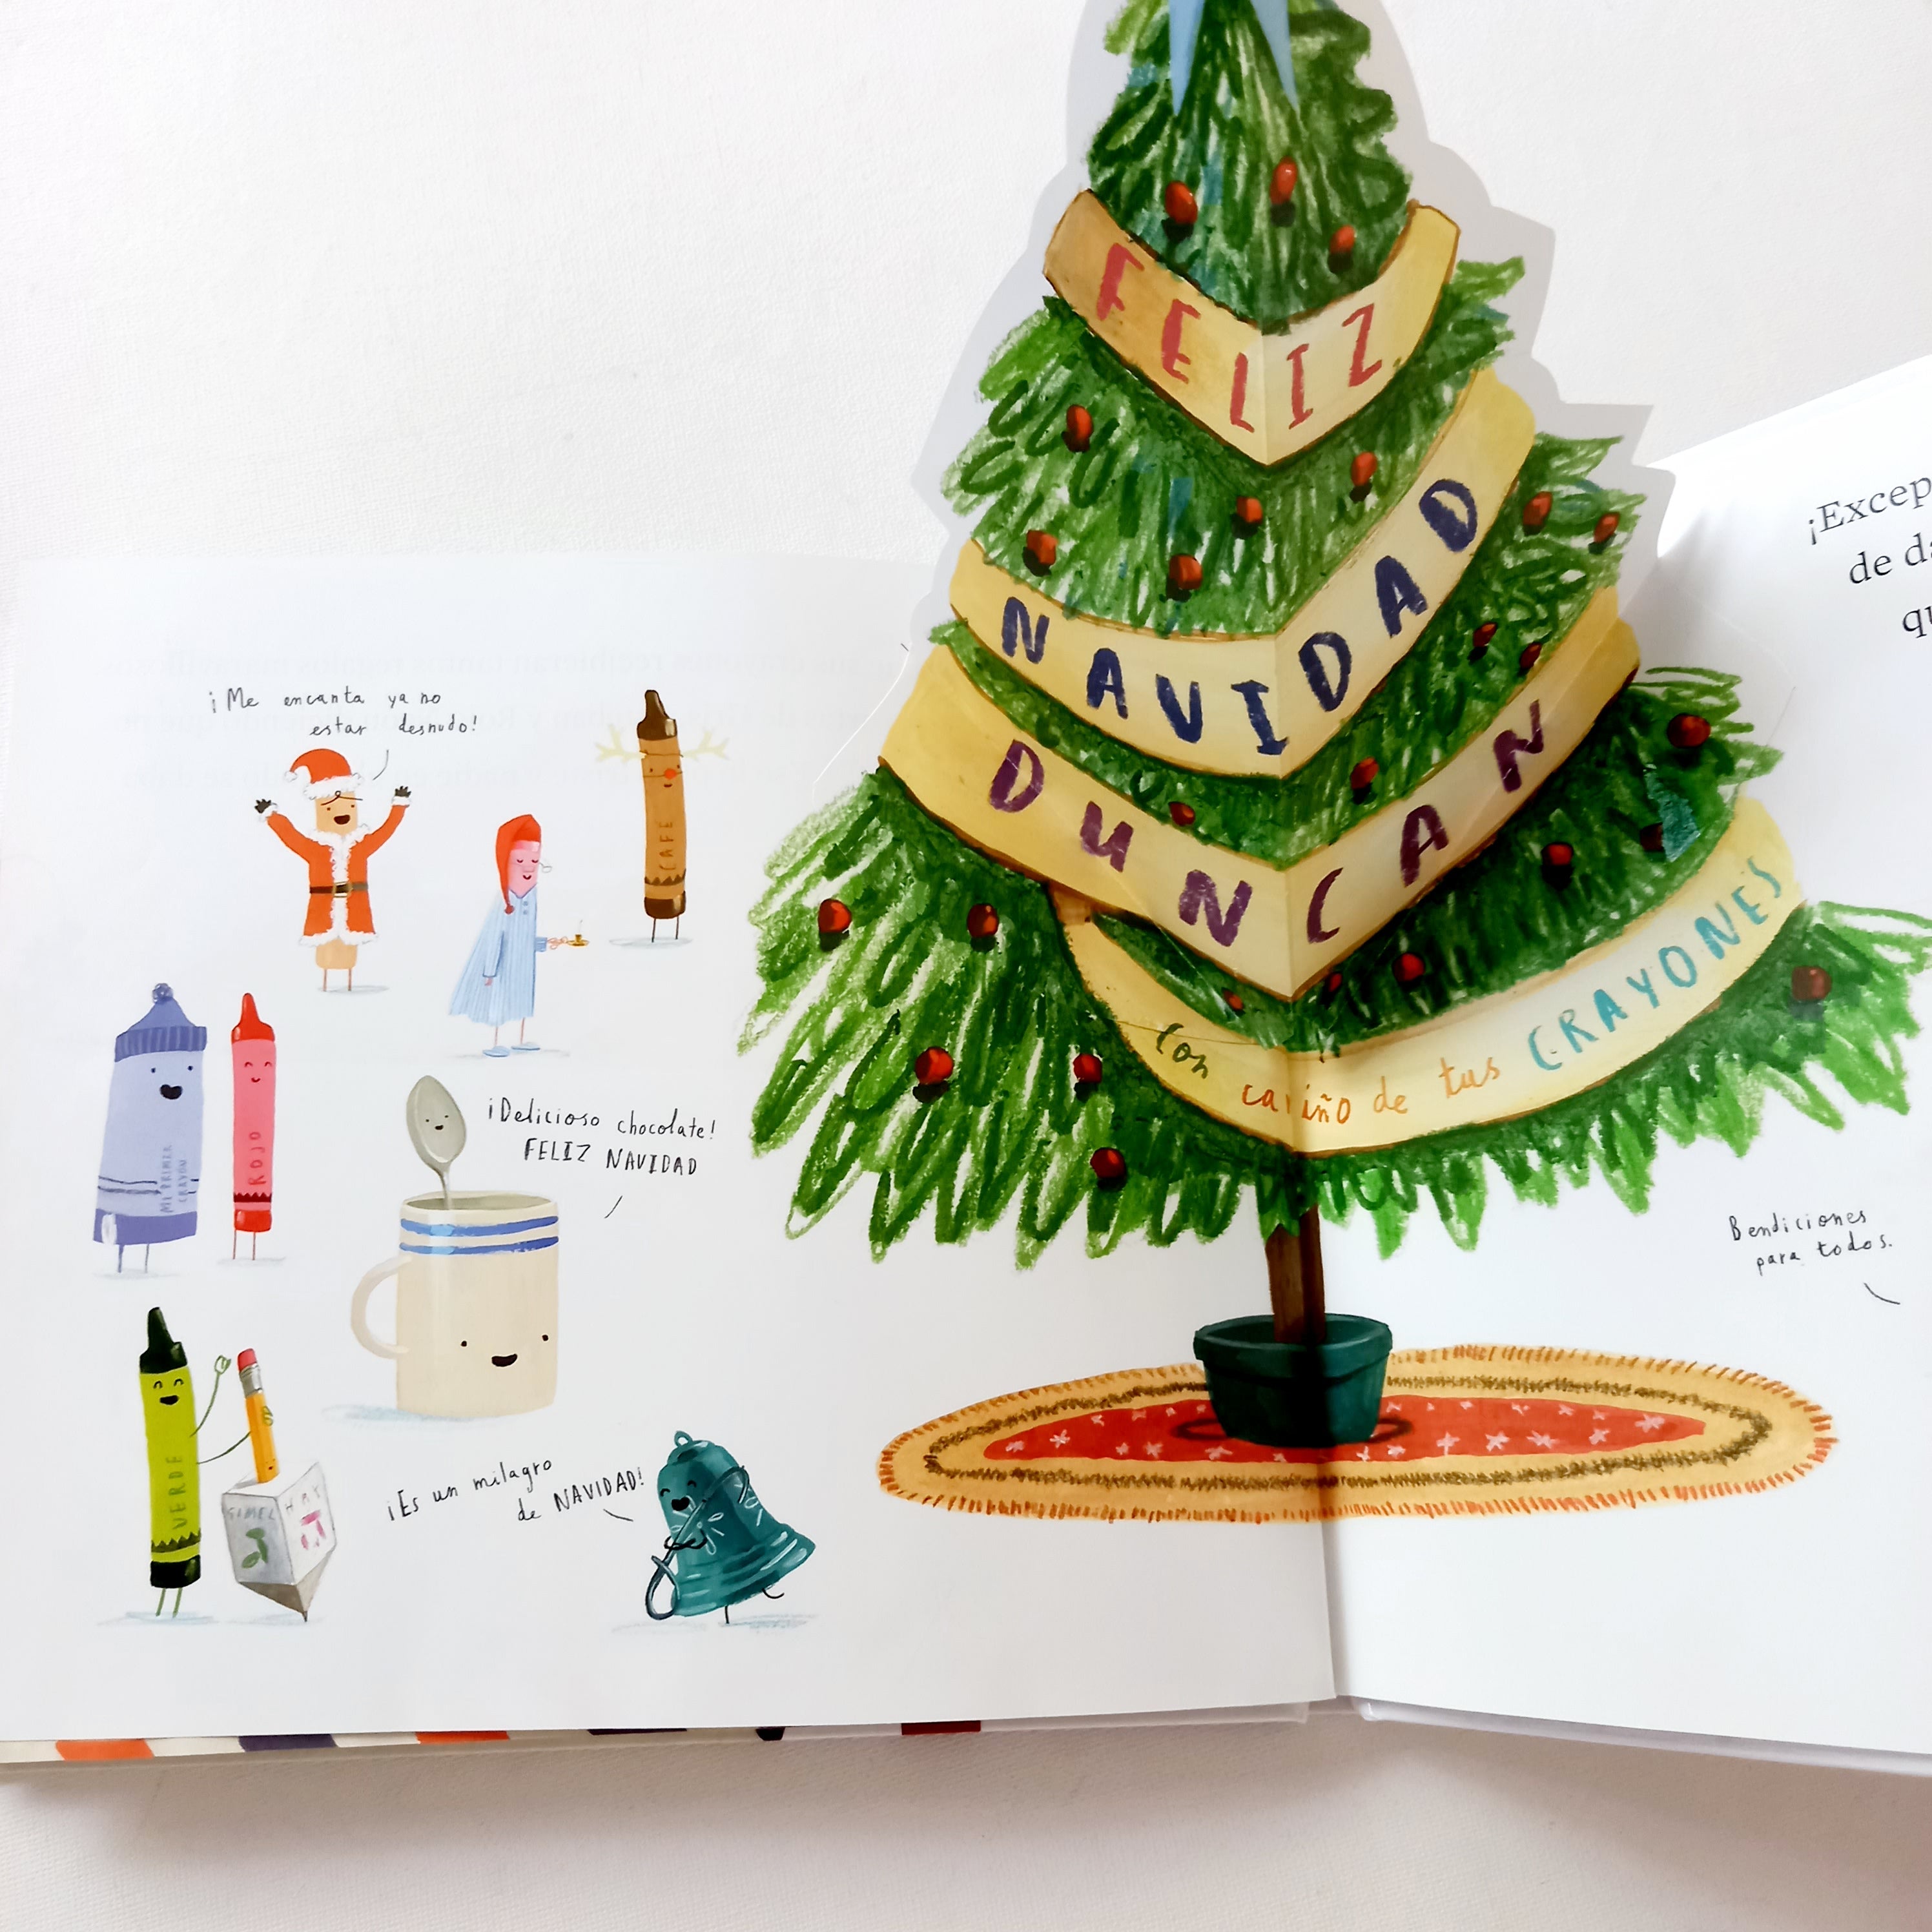 ¡Me encanta ya no
estar desnudo!
CAFÉ
MI PRIMER
CRAYÓN
ROJO
¡Delicioso chocolate!
FELIZ NAVIDAD
VERDE
GIMEL
ג
HAY
ה
¡Es un milagro
de NAVIDAD!
FELIZ
NAVIDAD
DUNCAN
Con cariño de tus CRAYONES
de
Bendiciones
para todos.